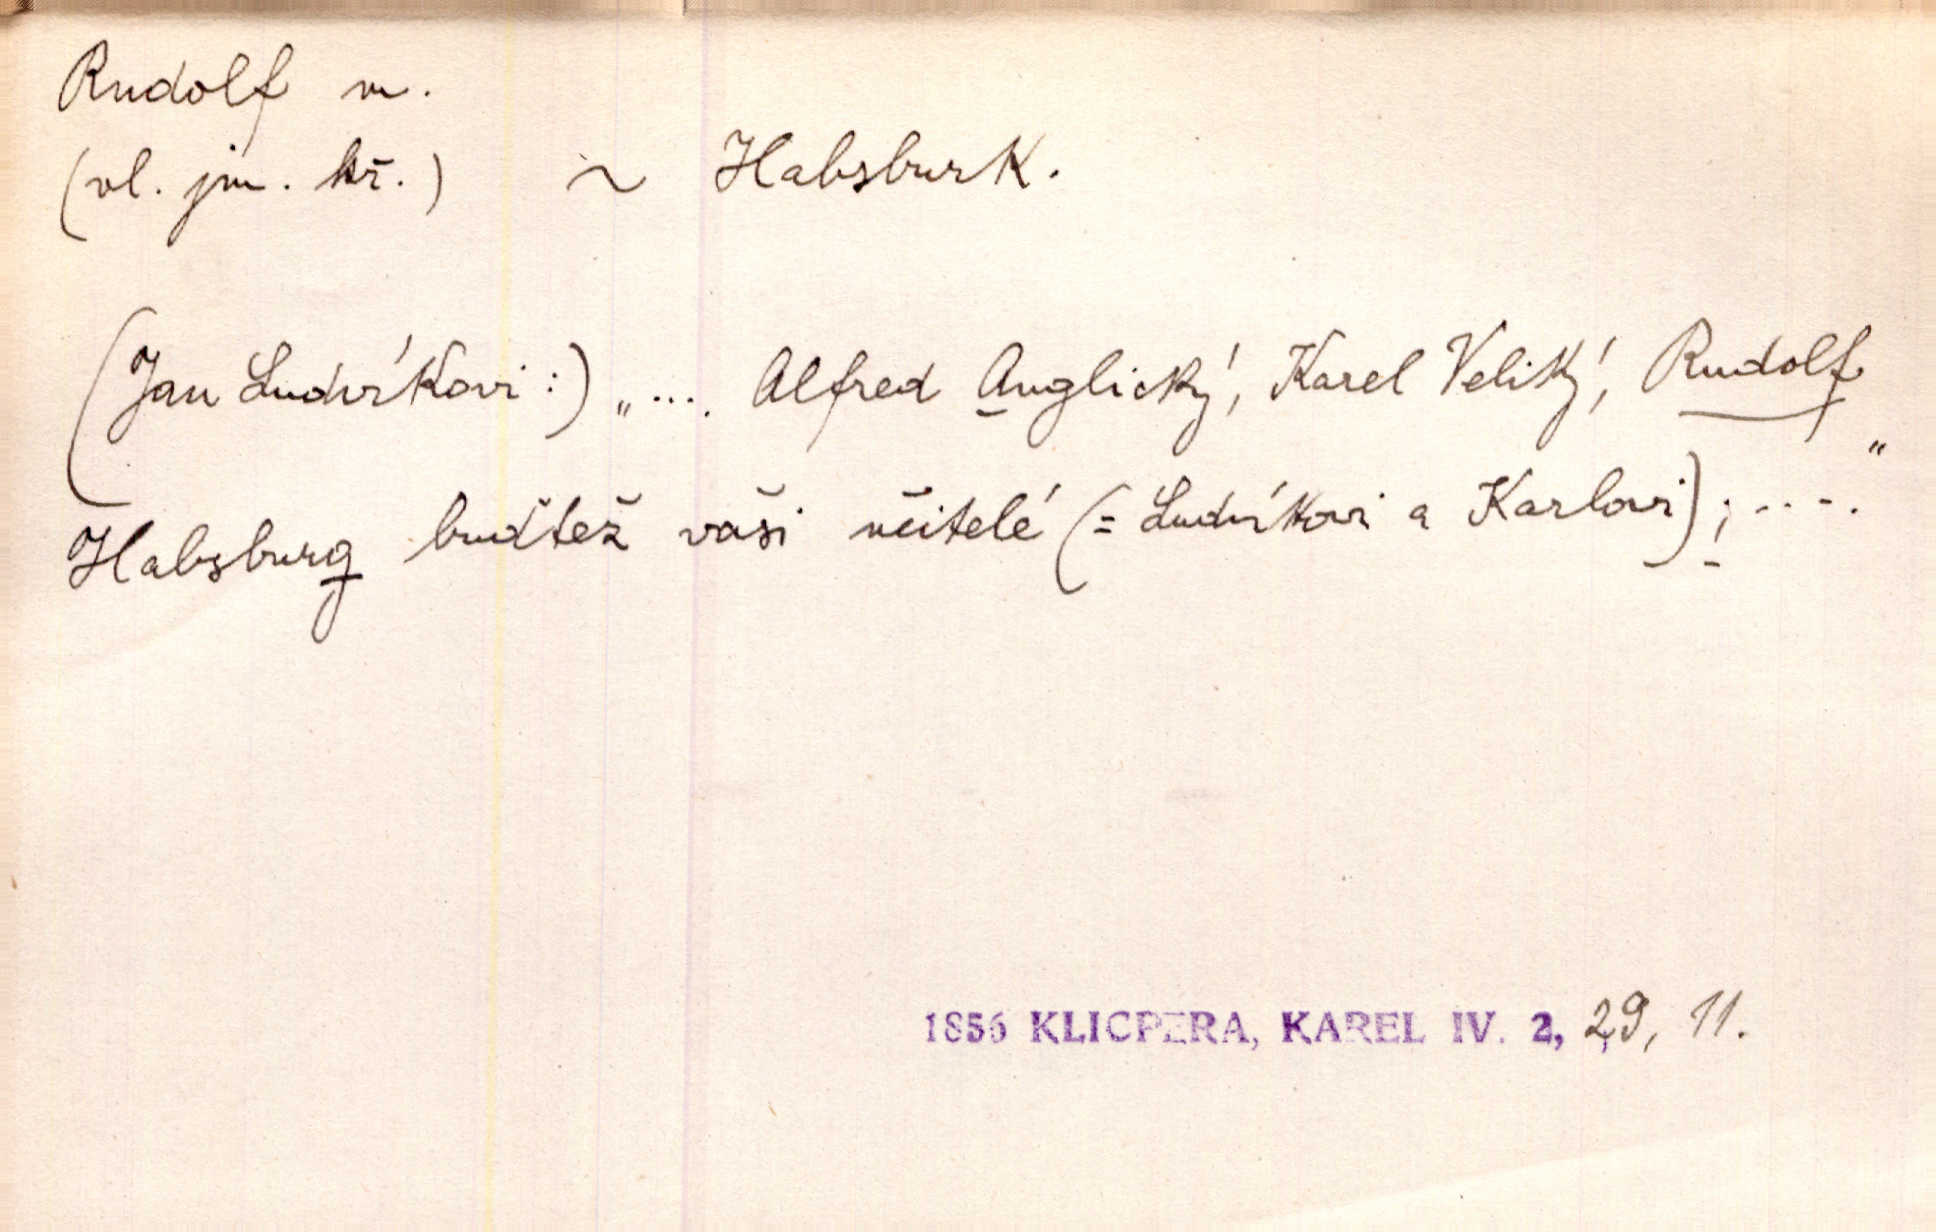 Rudolf m.
(vl. jm. kř.) ~ Habsburk.
(Jan Ludvíkovi:) „.... Alfred Anglický, Karel Veliký, Rudolf
Habsburg buďtež vaši učitelé (= Ludvíkovi a Karlovi); ...."
1856 KLICPERA, KAREL IV. 2, 29, 11.